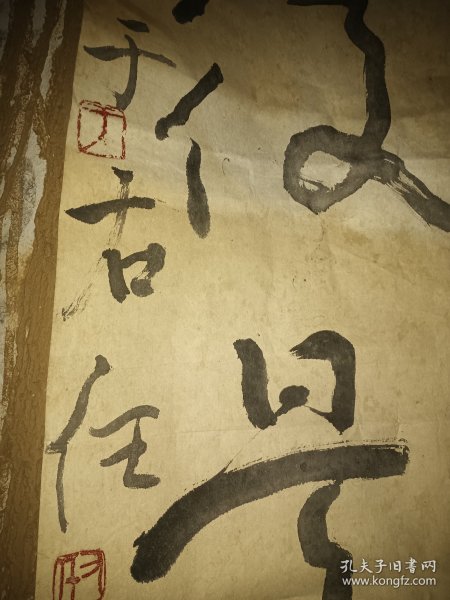 是
于右任
孔夫子旧书网
www.kongfz.com